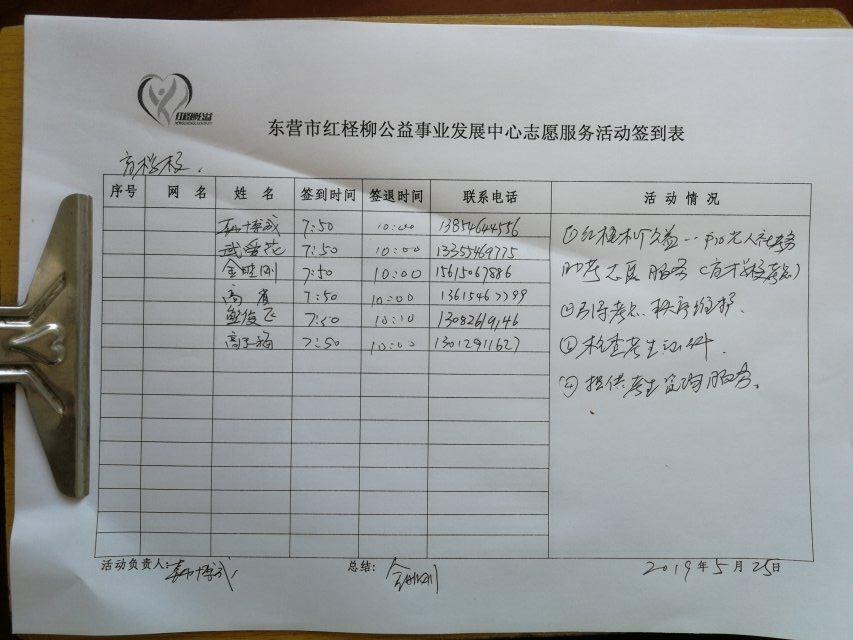 红柽柳公益
东营市红柽柳公益事业发展中心志愿服务活动签到表
序号 网 名 姓 名 签到时间 签退时间 联系电话 活 动 情 况
7:50 10:00 13854644556
武爱花 7:50 10:00 13355469775
金胜刚 7:50 10:00 15615067886
高 7:50 10:00
俊飞 7:50 10:10 13082619146
高 7:50 10:00 13012911627
①红柽柳公益
志愿服务
②引导考点、秩序维护.
③检查考生证件.
④提供考生咨询服务。
活动负责人: 总结: 金胜刚 2019年5月25日